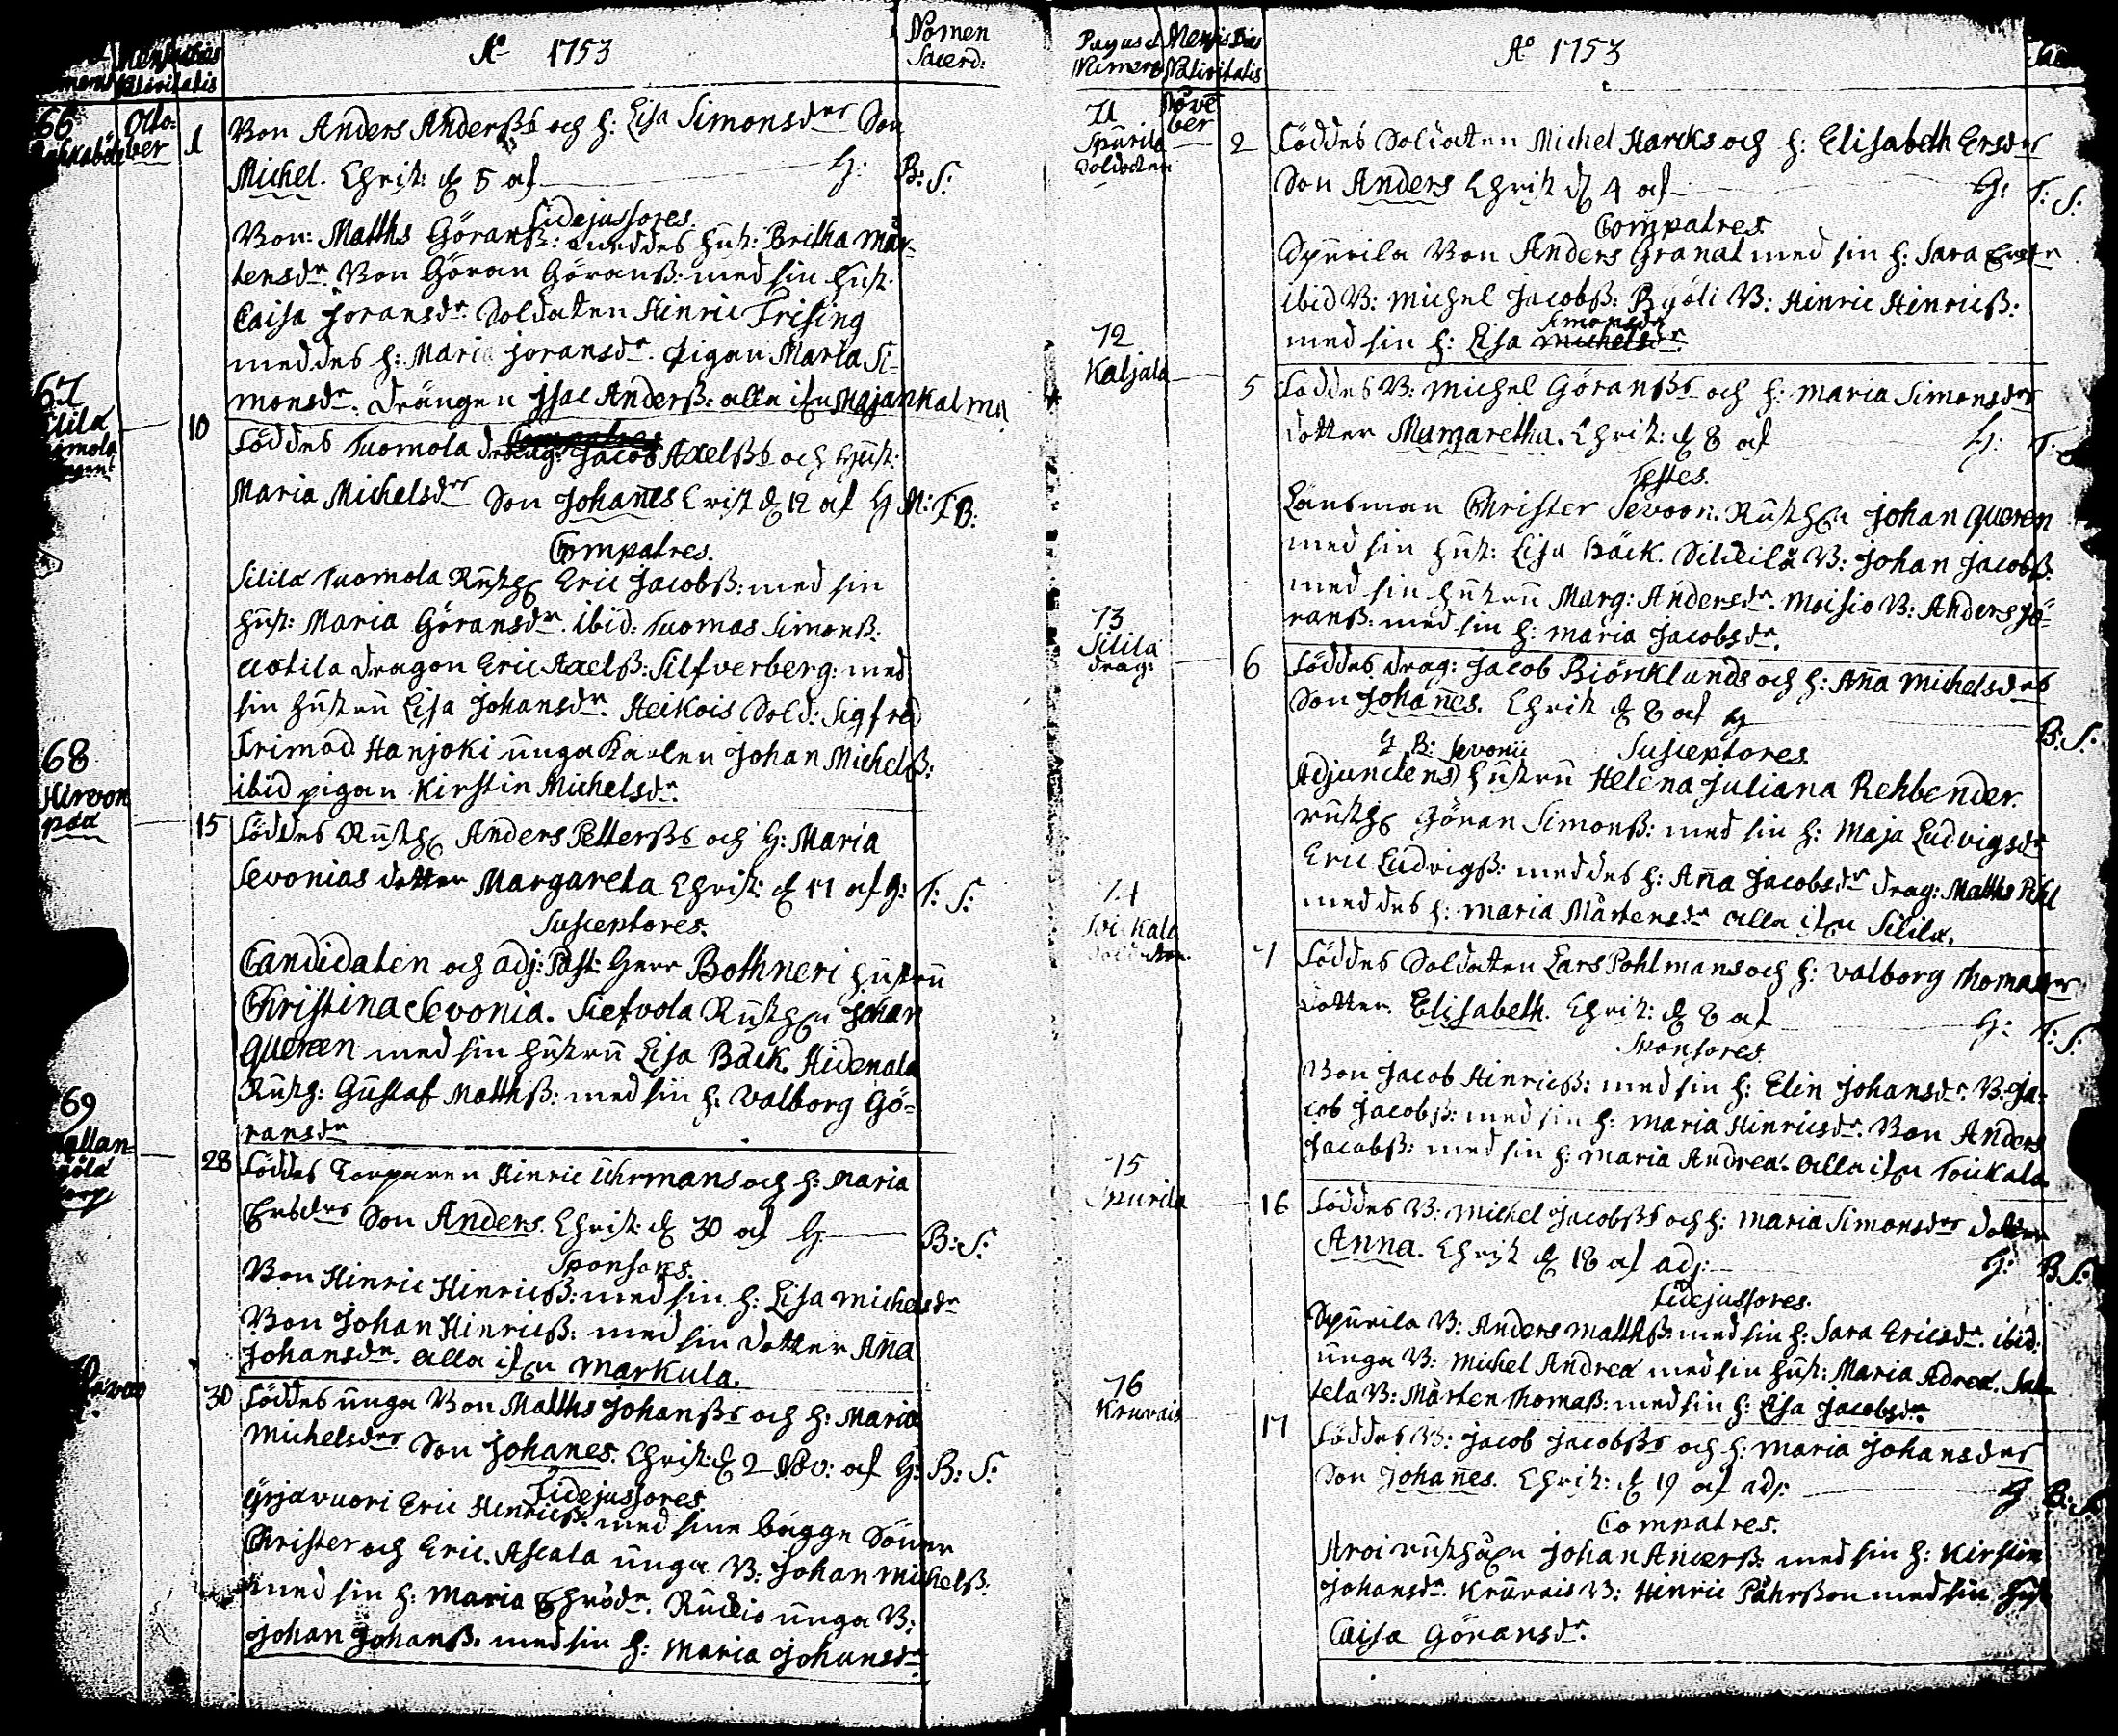 Mensis Dies
Nativitatis
Ao 1753
Nomen
Sacerd:
66
Octo-
ber
1
Bon Anders Anderßs och h: Lisa Simonsdrs Son
Michel. Christ: d 5 af H: B: S:
Fidejussores.
Bon: Matths Göranß: meddes hust: Britha Mår-
tensdr. Bon Göran Göranß: med sin hust:
Caisa Joransdr. Soldaten Hinric Frising
meddes h: Maria Joransdr. Pigan Maria Si-
monsdr. Drängen Isac Anderß: alla ifrn Majankalma
67
Silila
10
Föddes Tuomola drag: Jacob Axelßs och Hust:
Maria Michelsdrs Son Johanes Crist d 12 af H M: F B:
Compatres.
Silila Tuomola Rusth Eric Jacobß: med sin
hust: Maria Göransdr. ibid: Tuomas Simonß:
Uotila dragon Eric Axelß: Silfverberg: med
sin hustru Lisa Johansdr. Heikois Sold: Sigfred
Trimod Hanjoki unga Karlen Johan Michelß:
ibid pigan Kirstin Michelsdr.
68
Hirvon
pää
15
Föddes Rusth Anders Petterßs och H: Maria
Sevonias dotter Margareta Christ: d 17 af H: T: S:
Susceptores.
Candidaten och adj: Past: Herr Bothneri hustru
Christina Sevonia. Siefvola Rusthn Johan
Queren med sin hustru Lisa Bäck. Hidenala
Rusth: Gustaf Matthß: med sin h: Valborg Gö-
ransdr
69
28
Föddes Torparen Hinric Uhrmans och h: Maria
Ersdrs Son Anders. Christ: d 30 af H B: S:
Sponsores.
Bon Hinric Hinricß: med sin h: Lisa Michelsdr
Bon Johan Hinricß: med sin dotter Aña
Johansdr. alla ifrn Markula.
30
Föddes unga Bon Matths Johanßs och h: Maria
Michelsdrs Son Johanes. Christ: d 2 Nov: af H: B: S:
Fidejussores
Yrjävuori Eric Hinricß: med sine bägge Söner
Christer och Eric. Ascala unga B: Johan Michelß:
med sin h: Maria Chrsdr. Rudio unga B:
Johan Johanß: med sin h: Maria Johansdr
Pagus &
Numerus
Mensis Dies
Nativitatis
Ao 1753
71
Spurila
Soldaten
Nove
ber
2
Föddes Soldaten Michel Harcks och h: Elisabeth Ersdrs
Son Anders Christ d 4 af H: T: S:
Compatres
Spurila Bon Anders Granat med sin h: Sara Ersdr
ibid B: Michel Jacobß: Ryöli B: Hinric Hinricß:
med sin h: Lisa Michelsdr. Simonsdr
72
Kaljala
5
Föddes B: Michel Göranßs och h: Maria Simonsdrs
dotter Margaretha. Christ: d 8 af H: T:
Testes.
Länsman Christer Sevoon. Rusthn Johan Queren
med sin hust: Lisa Bäck. Sildeilä B: Johan Jacobß.
med sin hustru Marg: Andersdr. Moisio B: Anders Jö-
ranß: med sin h: Maria Jacobsdr.
73
Silila
drag:
6
Föddes drag: Jacob Biörcklunds och h: Aña Michelsdrs
Son Johañes. Christ d 8 af H B: S:
Susceptores.
Adjunctens H B: Sevonii hustru Helena Juliana Rehbender.
rusth Göran Simonß: med sin h: Maja Ludvigsdr
Eric Ludvigß: meddes h: Aña Jacobsdr drag: Matths Pihl
meddes h: Maria Mårtensdr alla ifrn Silila.
74
Toikala
Soldaten
7
Föddes Soldaten Lars Pohlmans och h: Valborg Thomadrs
dotter Elisabeth. Christ: d 8 af H: T: S:
Sponsores.
Bon Jacob Hinricß: med sin h: Elin Johansdr. B: Ja-
cob Jacobß: med sin h: Maria Hinricsdr. Bon Anders
Jacobß: med sin h: Maria Andreæ. alla ifrn Toikala
75
Spurila
16
Föddes B: Michel Jacobßs och h: Maria Simonsdrs dotter
Anna. Christ d 18 af adj: H: B S:
Fidejussores.
Spurila B: Anders Matthß: med sin h: Sara Ericsdr. ibid:
unga B: Michel Andreæ med sin hust: Maria Adreæ. Sal-
tela B: Mårten Thomaß: med sin h: Lisa Jacobsdr.
76
Kruvais
17
Föddes B: Jacob Jacobßs och h: Maria Johansdrs
Son Johañes. Christ: d 19 af adj: H B: S:
Compatres.
Aroi rusthn Johan Anderß: med sin h: Kirstin
Johansdr. Kruvais B: Hinric Påhrßon med sin hust
Caisa Göransdr.